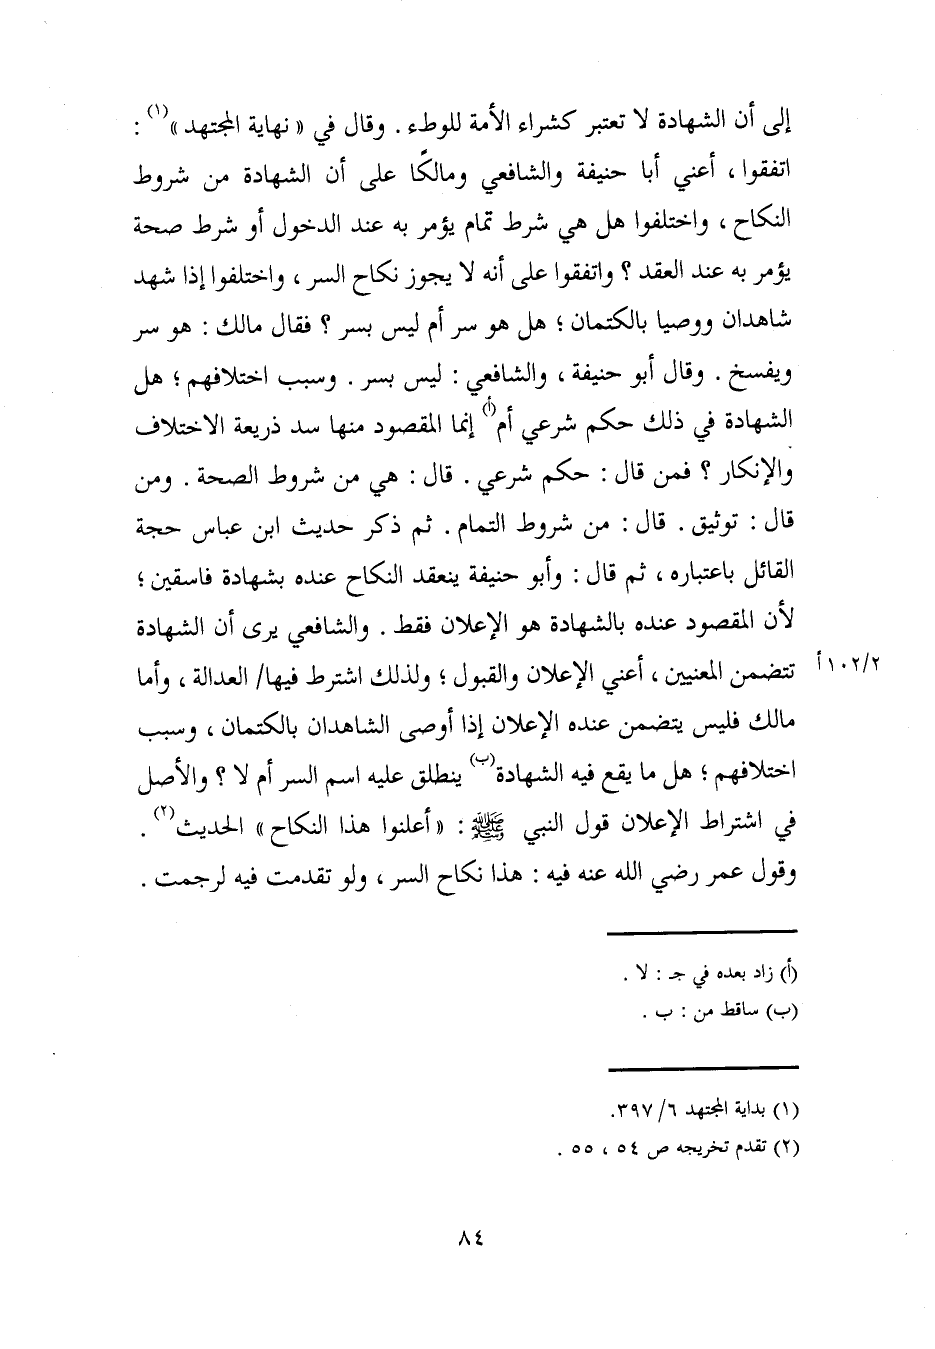 إلى أن الشهادة لا تعتبر كشراء الأمة للوطء . وقال في « نهاية المجتهد »(١) :
اتفقوا ، أعني أبا حنيفة والشافعي ومالكًا على أن الشهادة من شروط
النكاح ، واختلفوا هل هي شرط تمام يؤمر به عند الدخول أو شرط صحة
يؤمر به عند العقد ؟ واتفقوا على أنه لا يجوز نكاح السر ، واختلفوا إذا شهد
شاهدان ووصيا بالكتمان ؛ هل هو سر أم ليس بسر ؟ فقال مالك : هو سر
ويفسخ . وقال أبو حنيفة ، والشافعي : ليس بسر . وسبب اختلافهم ؛ هل
الشهادة في ذلك حكم شرعي أم(أ) إنما المقصود منها سد ذريعة الاختلاف
والإنكار ؟ فمن قال : حكم شرعي . قال : هي من شروط الصحة . ومن
قال : توثيق . قال : من شروط التمام . ثم ذكر حديث ابن عباس حجة
القائل باعتباره ، ثم قال : وأبو حنيفة ينعقد النكاح عنده بشهادة فاسقين ؛
لأن المقصود عنده بالشهادة هو الإعلان فقط . والشافعي يرى أن الشهادة
تتضمن المعنيين ، أعني الإعلان والقبول ؛ ولذلك اشترط فيها/ العدالة ، وأما
١٠٢/٢أ
مالك فليس يتضمن عنده الإعلان إذا أوصى الشاهدان بالكتمان ، وسبب
اختلافهم ؛ هل ما يقع فيه الشهادة(ب) ينطلق عليه اسم السر أم لا ؟ والأصل
في اشتراط الإعلان قول النبي ﷺ : « أعلنوا هذا النكاح » الحديث(٢) .
وقول عمر رضي الله عنه فيه : هذا نكاح السر ، ولو تقدمت فيه لرجمت .
(أ) زاد بعده في جـ : لا .
(ب) ساقط من : ب .
(١) بداية المجتهد ٦/ ٣٩٧.
(٢) تقدم تخريجه ص ٥٤ ، ٥٥ .
٨٤